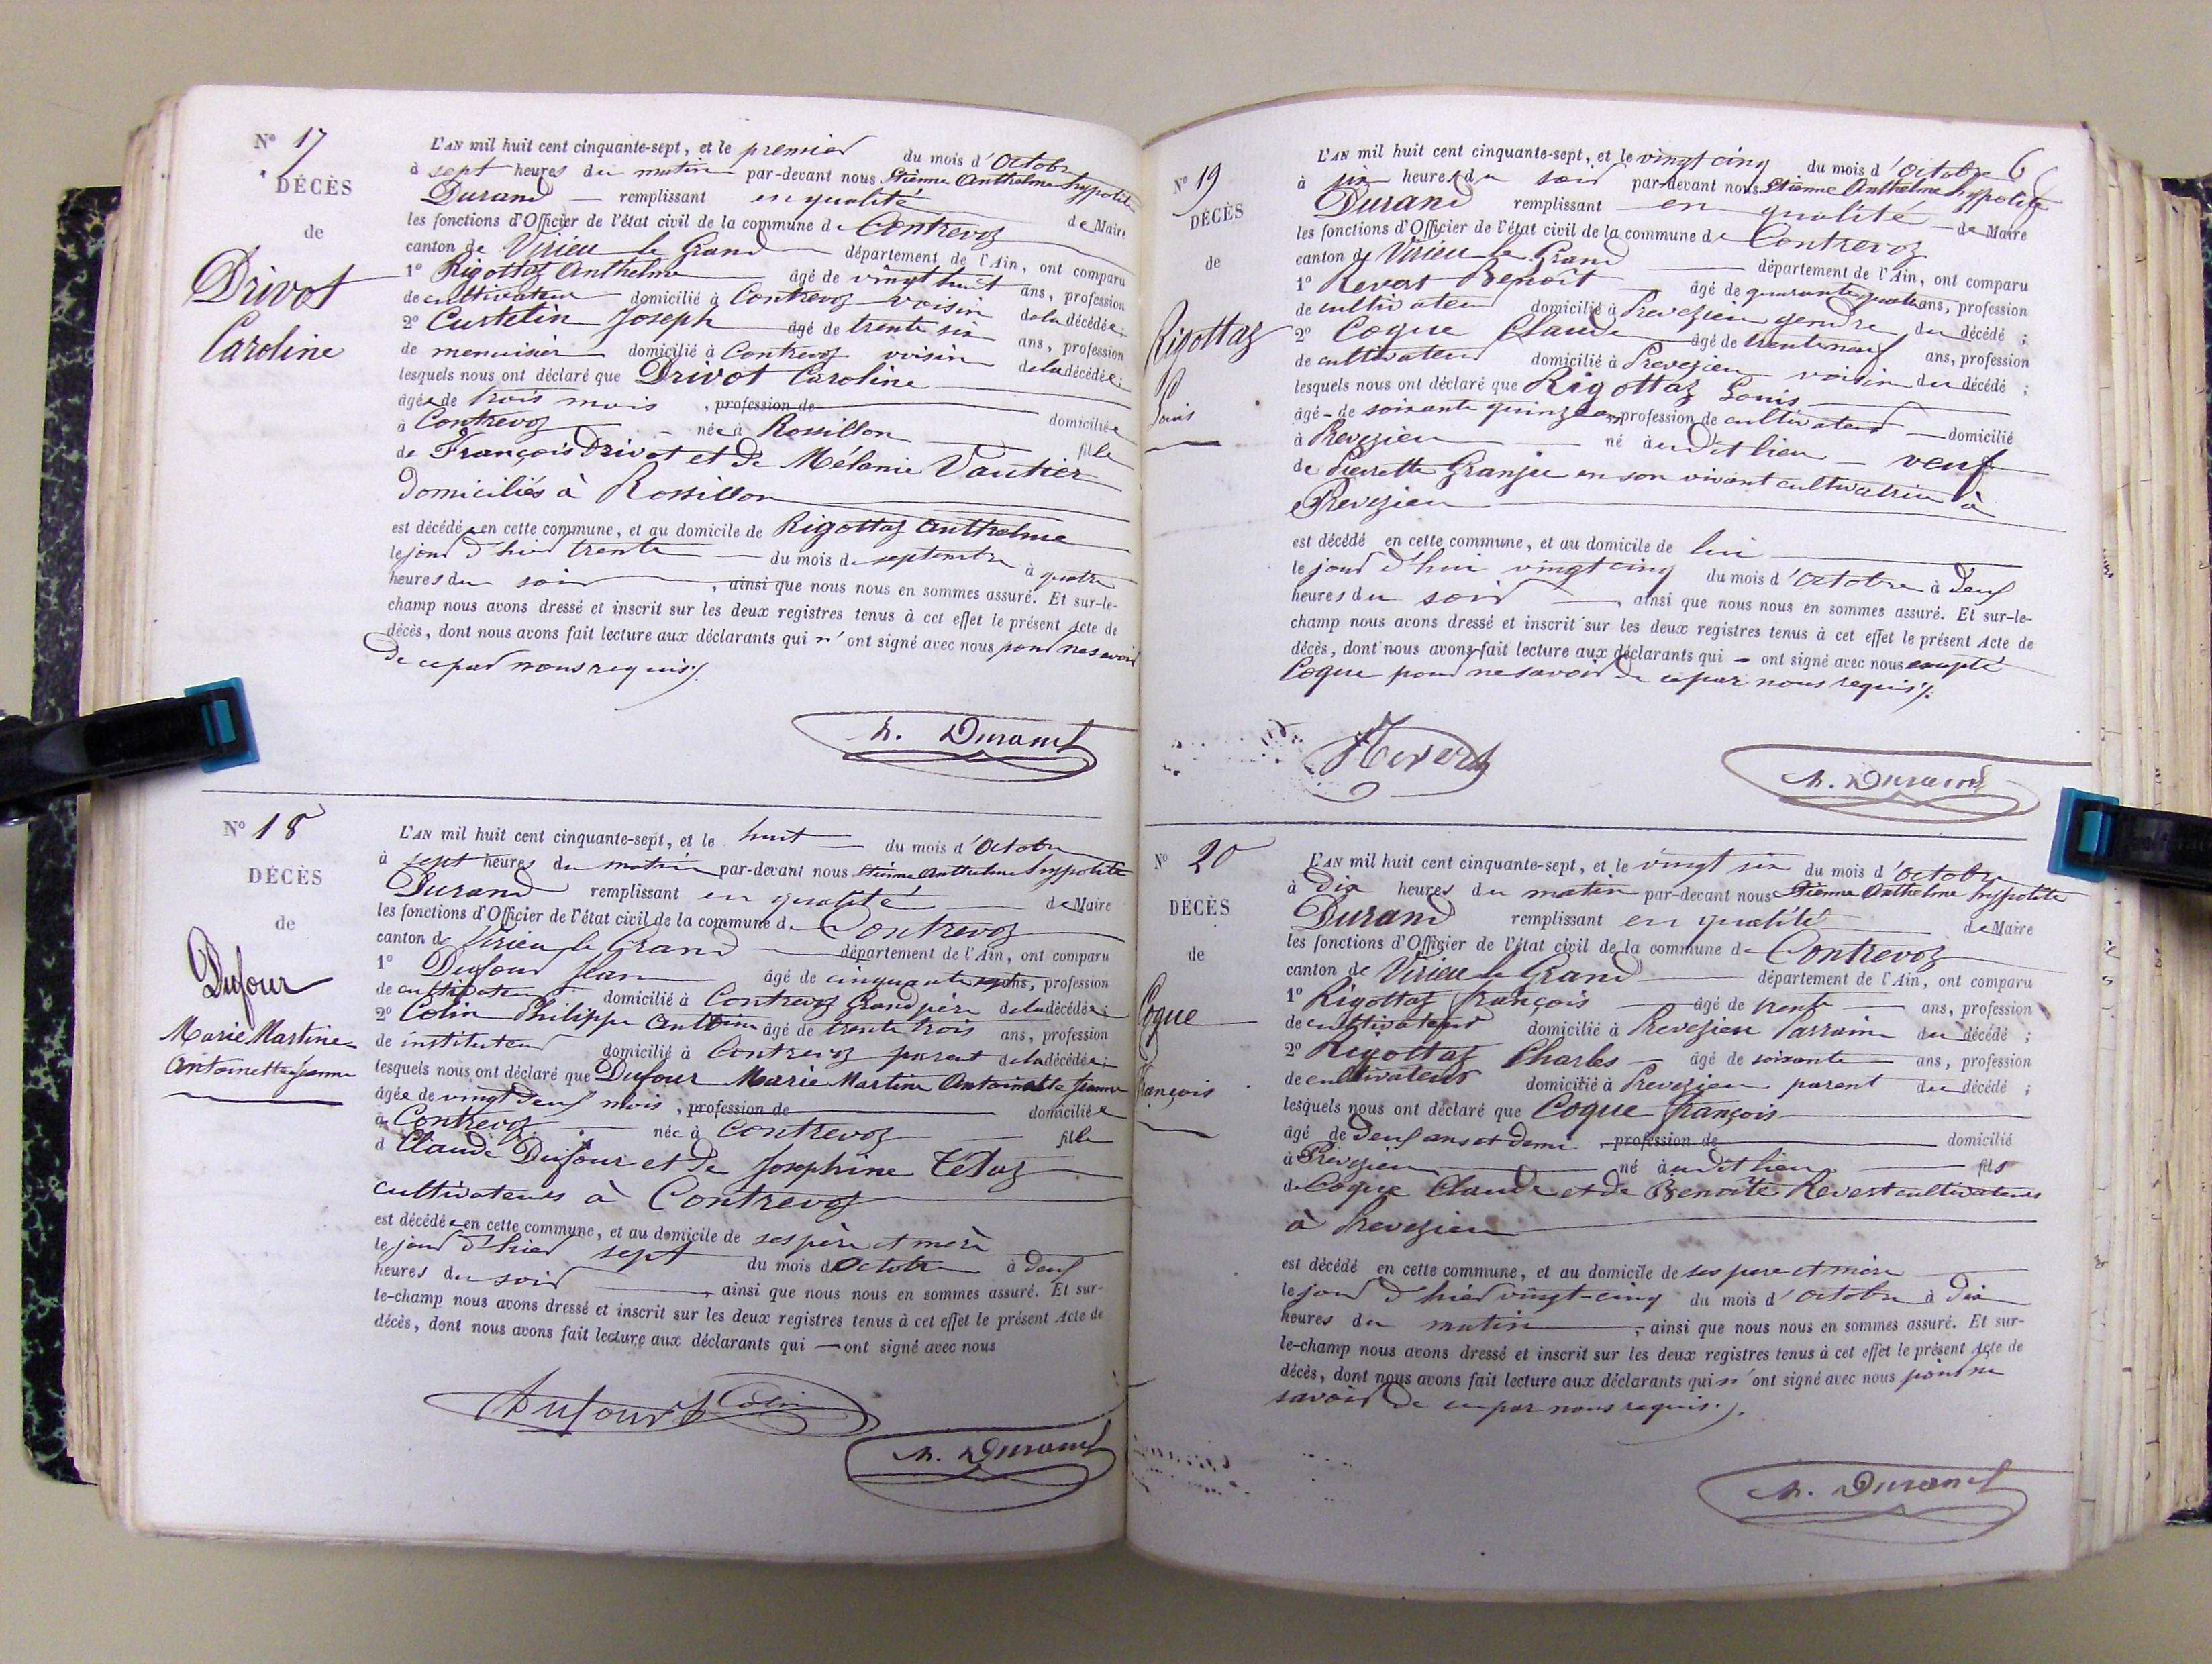 N° 17
DÉCÈS
de
Drivot
Caroline
L'AN mil huit cent cinquante-sept, et le premier du mois d'Octobre
à sept heures du matin par-devant nous Etienne Anthelme hyppolite
Durand remplissant en qualité de Maire
les fonctions d'Officier de l'état civil de la commune de Contrevoz
canton de Virieu le Grand département de l'Ain, ont comparu
1° Rigottaz Anthelme âgé de vingt huit ans, profession
de cultivateur domicilié à Contrevoz voisin de la décédée;
2° Curtelin Joseph âgé de trente six ans, profession
de menuisier domicilié à Contrevoz voisin de la décédée;
lesquels nous ont déclaré que Drivot Caroline
âgée de trois mois, profession de domiciliée
à Contrevoz née à Rossillon fille
de François Drivot et de Mélanie Vautier
domiciliés à Rossillon
est décédée en cette commune, et au domicile de Rigottaz Anthelme
le jour d'hier trente du mois de septembre à quatre
heures du soir, ainsi que nous nous en sommes assuré. Et sur-le-
champ nous avons dressé et inscrit sur les deux registres tenus à cet effet le présent Acte de
décès, dont nous avons fait lecture aux déclarants qui n'ont signé avec nous pour ne savoir
de ce par nous requis ./.
h. Durand
N° 18
DÉCÈS
de
Dufour
Marie Martine
Antoinette Jeanne
L'AN mil huit cent cinquante-sept, et le huit du mois d'Octobre
à sept heures du matin par-devant nous Etienne Anthelme hyppolite
Durand remplissant en qualité de Maire
les fonctions d'Officier de l'état civil de la commune de Contrevoz
canton de Virieu le Grand département de l'Ain, ont comparu
1° Dufour Jean âgé de cinquante sept ans, profession
de cultivateur domicilié à Contrevoz Grand père de la décédée;
2° Colin Philippe Antoine âgé de trente trois ans, profession
de instituteur domicilié à Contrevoz parent de la décédée;
lesquels nous ont déclaré que Dufour Marie Martine Antoinette Jeanne
âgée de vingt deux mois, profession de domiciliée
à Contrevoz née à Contrevoz fille
d Claude Dufour et de Josephine Tétaz
cultivateurs à Contrevoz
est décédée en cette commune, et au domicile de ses père et mère
le jour d'hier sept du mois d'Octobre à deux
heures du soir, ainsi que nous nous en sommes assuré. Et sur-
le-champ nous avons dressé et inscrit sur les deux registres tenus à cet effet le présent Acte de
décès, dont nous avons fait lecture aux déclarants qui — ont signé avec nous
Dufour Colin
h. Durand
6
N° 19
DÉCÈS
de
Rigottaz
Louis
L'AN mil huit cent cinquante-sept, et le vingt cinq du mois d'Octobre
à six heures du soir par-devant nous Etienne Anthelme hyppolite
Durand remplissant en qualité de Maire
les fonctions d'Officier de l'état civil de la commune de Contrevoz
canton de Virieu le Grand département de l'Ain, ont comparu
1° Revert Benoît âgé de quarante quatre ans, profession
de cultivateur domicilié à Prevezieu gendre du décédé;
2° Coque Claude âgé de trente neuf ans, profession
de cultivateur domicilié à Prevezieu voisin du décédé;
lesquels nous ont déclaré que Rigottaz Louis
âgé de soixante quinze ans, profession de cultivateur domicilié
à Prevezieu né au dit lieu veuf
de Pierrette Granju en son vivant cultivatrice à
Prevezieu
est décédé en cette commune, et au domicile de lui
le jour d'hui vingt cinq du mois d'Octobre à deux
heures du soir, ainsi que nous nous en sommes assuré. Et sur-le-
champ nous avons dressé et inscrit sur les deux registres tenus à cet effet le présent Acte de
décès, dont nous avons fait lecture aux déclarants qui — ont signé avec nous excepté
Coque pour ne savoir de ce par nous requis ./.
Revert
h. Durand
N° 20
DÉCÈS
de
Coque
François
L'AN mil huit cent cinquante-sept, et le vingt six du mois d'Octobre
à dix heures du matin par-devant nous Etienne Anthelme hyppolite
Durand remplissant en qualité de Maire
les fonctions d'Officier de l'état civil de la commune de Contrevoz
canton de Virieu le Grand département de l'Ain, ont comparu
1° Rigottaz François âgé de trente ans, profession
de cultivateur domicilié à Prevezieu Parrain du décédé;
2° Rigottaz Charles âgé de soixante ans, profession
de cultivateur domicilié à Prevezieu parent du décédé;
lesquels nous ont déclaré que Coque François
âgé de deux ans et demi, profession de domicilié
à Prevezieu né au dit lieu fils
de Coque Claude et de Benoîte Revert cultivateurs
à Prevezieu
est décédé en cette commune, et au domicile de ses pere et mère
le jour d'hier vingt-cinq du mois d'Octobre à dix
heures du matin, ainsi que nous nous en sommes assuré. Et sur-
le-champ nous avons dressé et inscrit sur les deux registres tenus à cet effet le présent Acte de
décès, dont nous avons fait lecture aux déclarants qui n'ont signé avec nous pour ne
savoir de ce par nous requis ./.
h. Durand